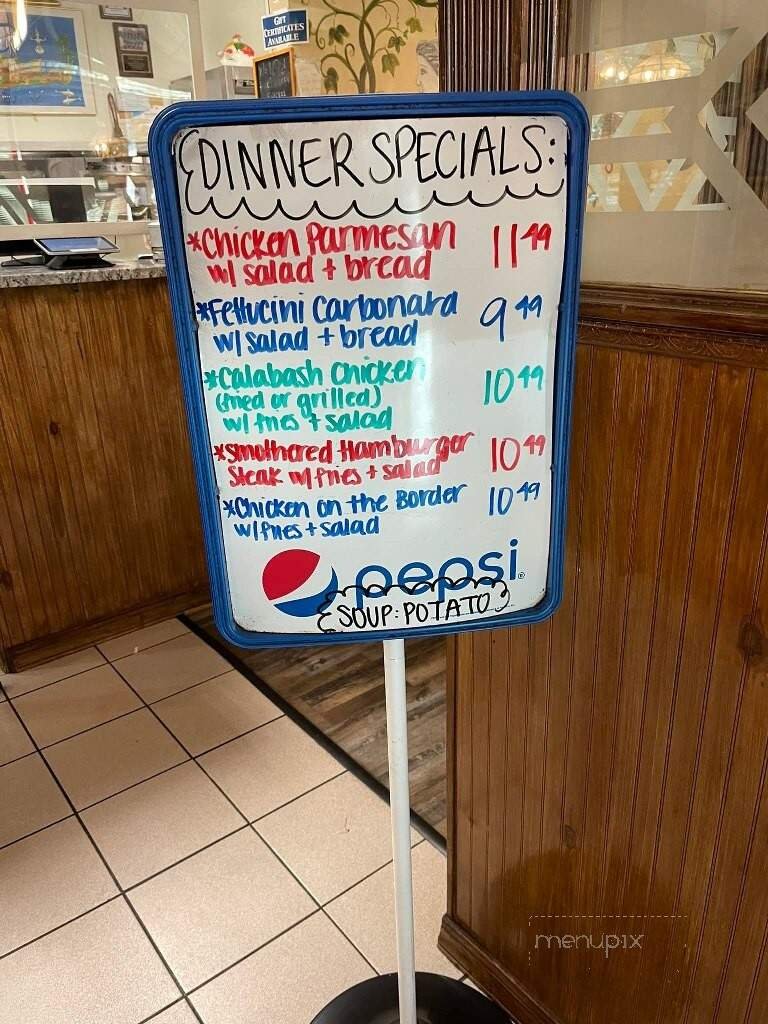 GIFT
CERTIFICATES
AVAILABLE
DINNER SPECIALS:
*Chicken Parmesan 11.49
w/ salad + bread
*Fettucini Carbonara 9.49
w/ salad + bread
*Calabash Chicken 10.49
(fried or grilled)
w/ fries + salad
*Smothered Hamburger 10.49
Steak w/ fries + salad
*Chicken on the Border 10.49
w/ fries + salad
pepsi
SOUP: POTATO
menupix